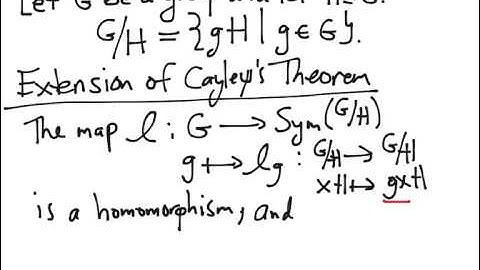 Let G be a group and let H ≤ G.
G/H = {gH | g ∈ G}.
Extension of Cayley's Theorem
The map l : G → Sym(G/H)
g ↦ l_g : G/H → G/H
xH ↦ gxH
is a homomorphism, and